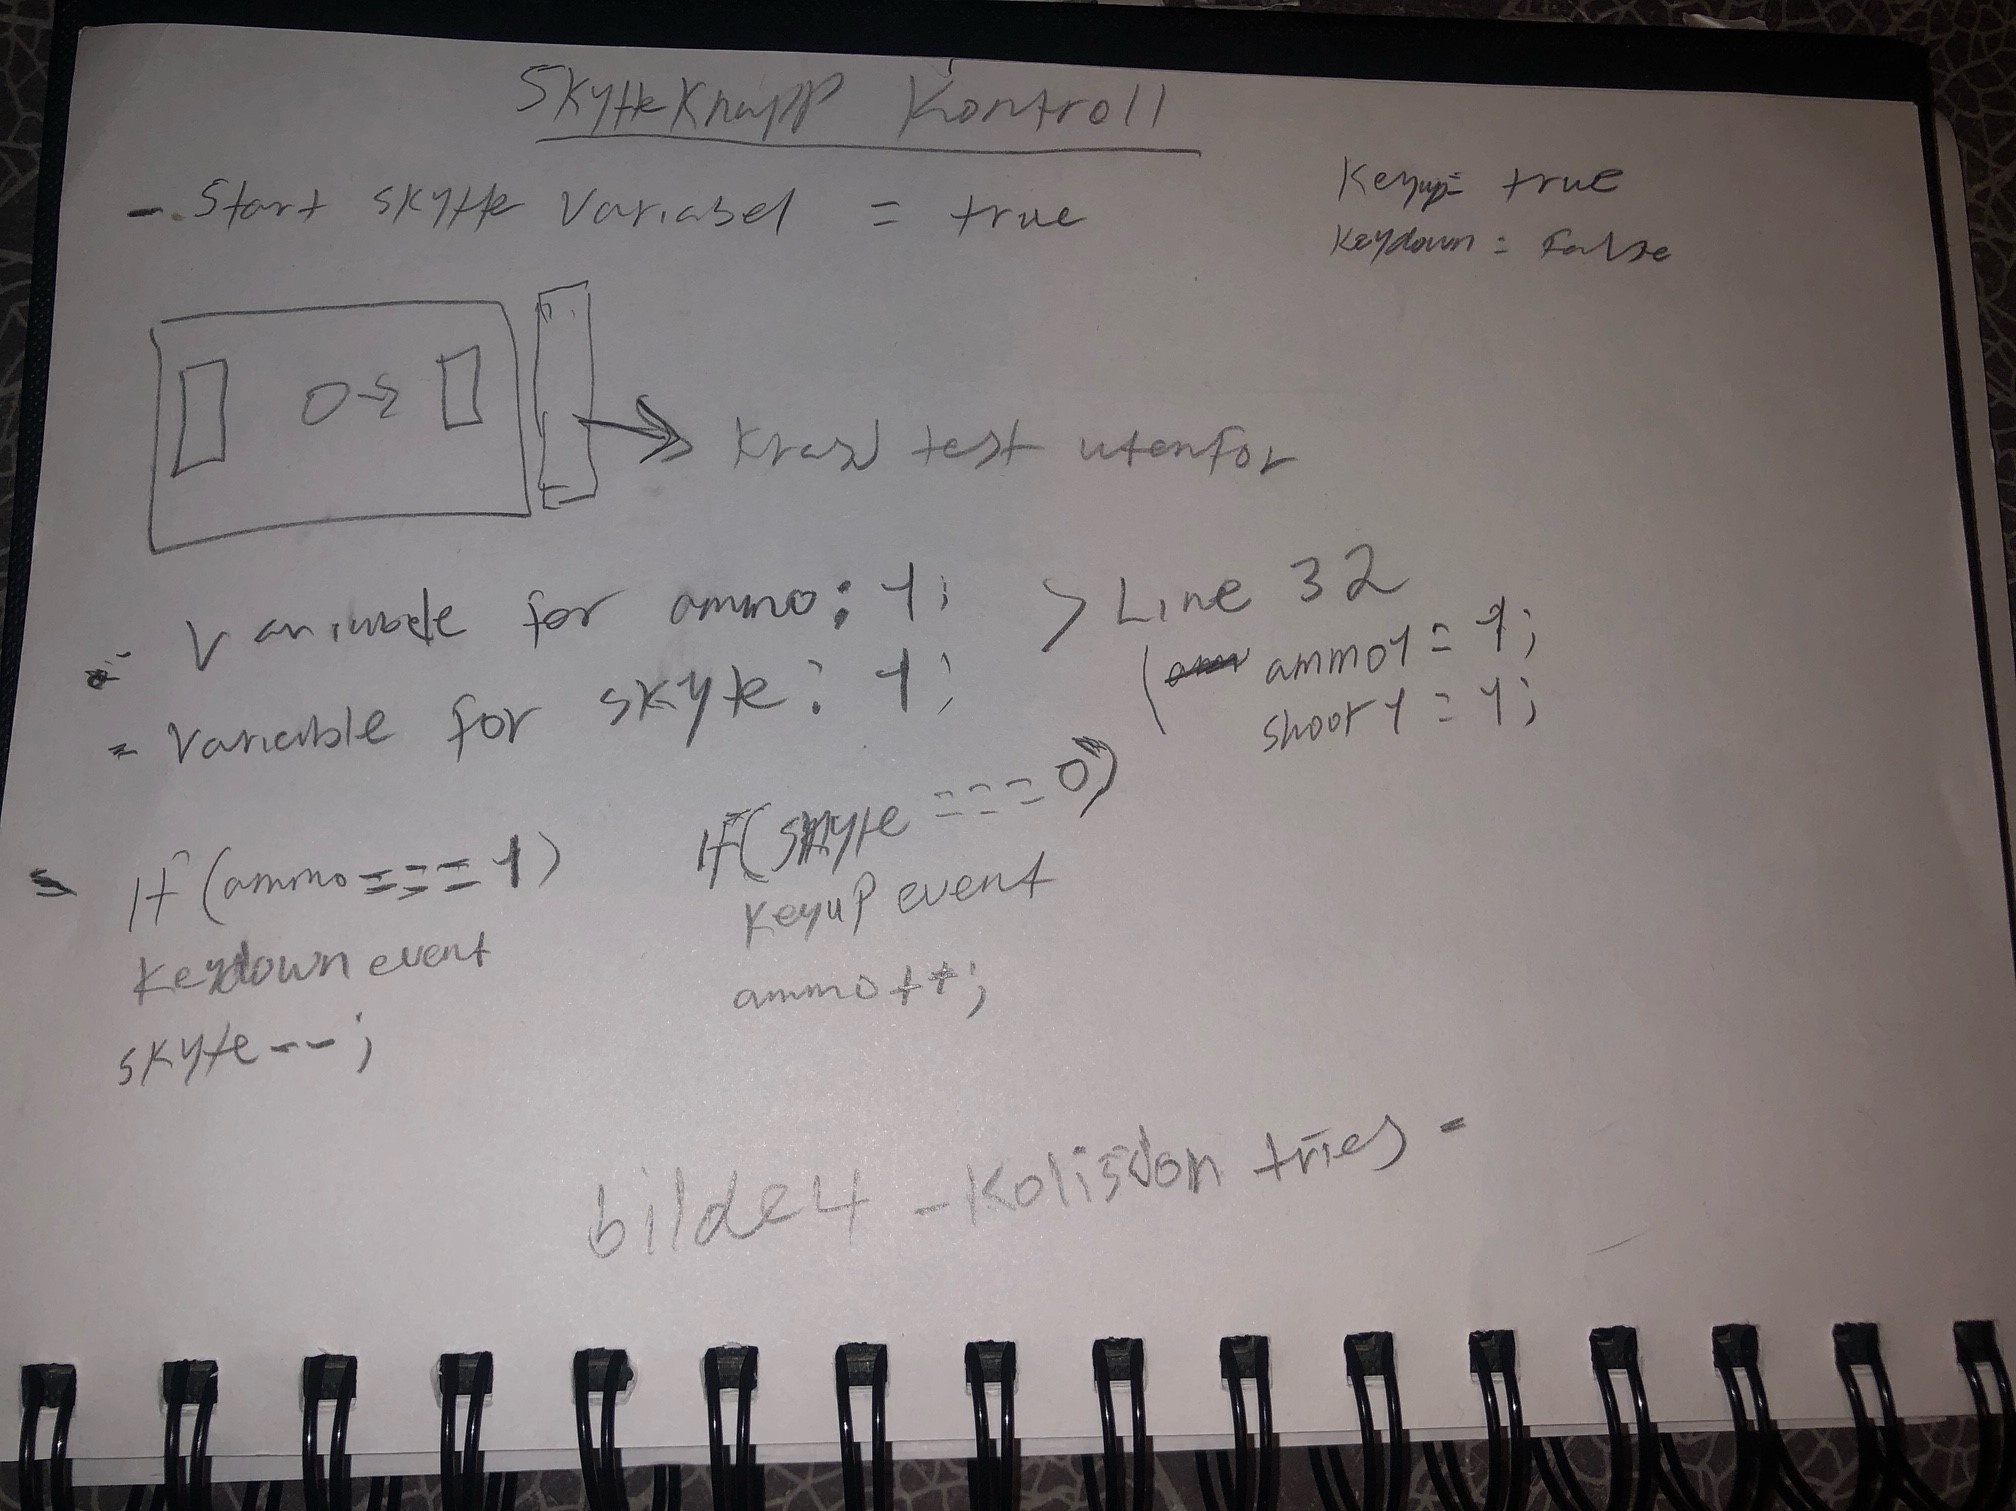 Skytteknapp Kontroll
- Start skytte variabel = true
Keyup = true
Keydown = false
test utenfor
- Variabele for ammo: 1;
> Line 32
ammo1 = 1;
= Variable for skyte: 1;
shoot1 = 1;
If (ammo === 1)
Keydown event
skyte--;
If (skyte === 0)
Keyup event
ammo++;
bilde 4 - Kolisdon tries -